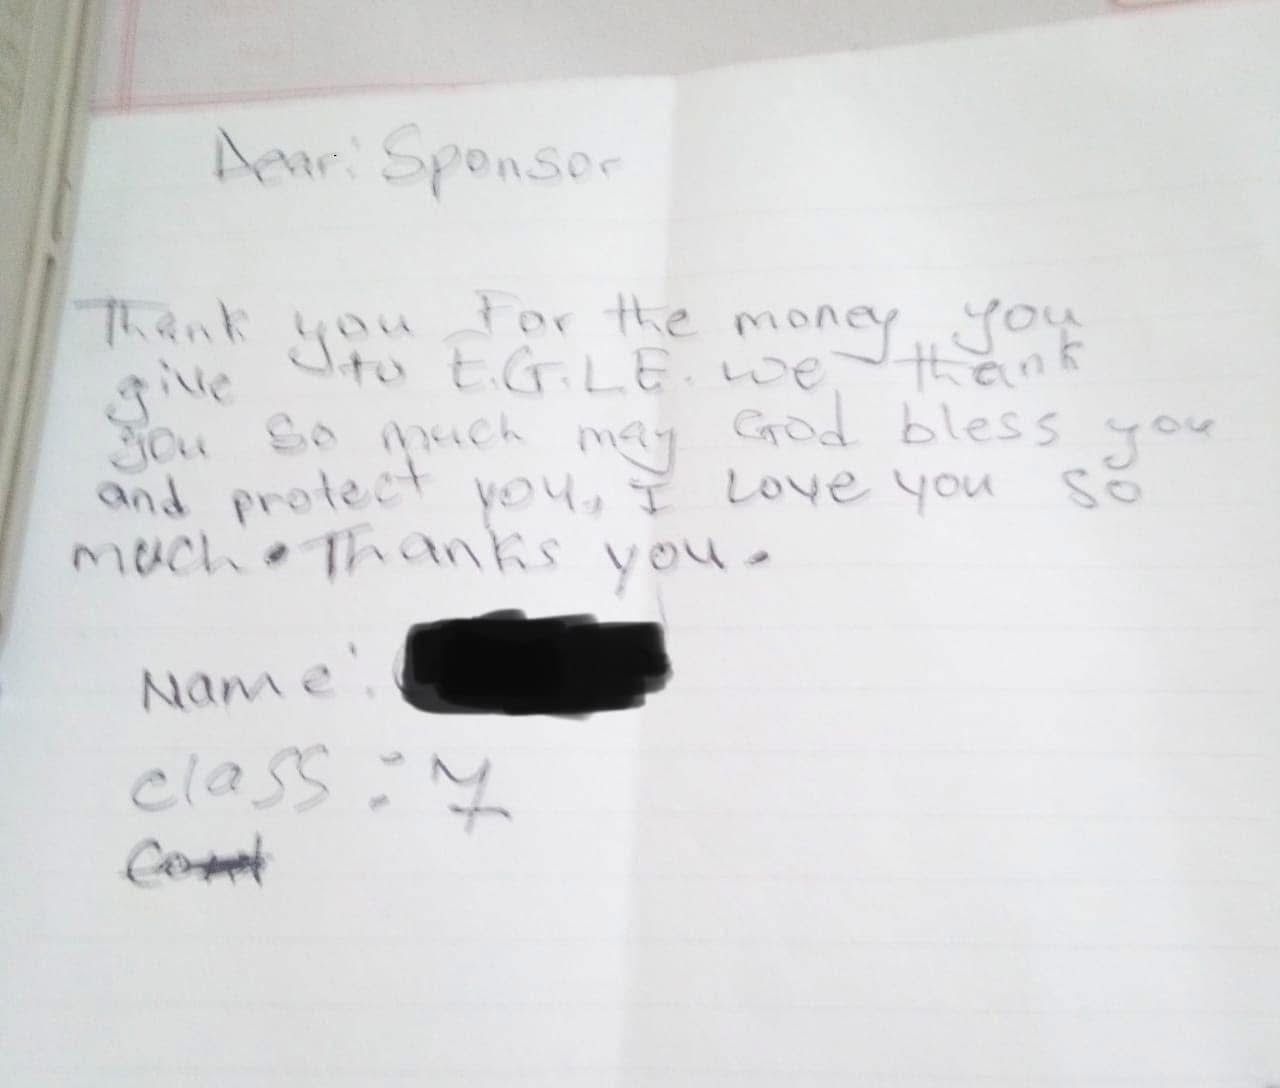 Dear: Sponsor
Thank you For the money you
give to E.G.L.E. we thank
you so much may God bless you
and protect you, I Love you so
much. Thanks you.
Name:
class: 7